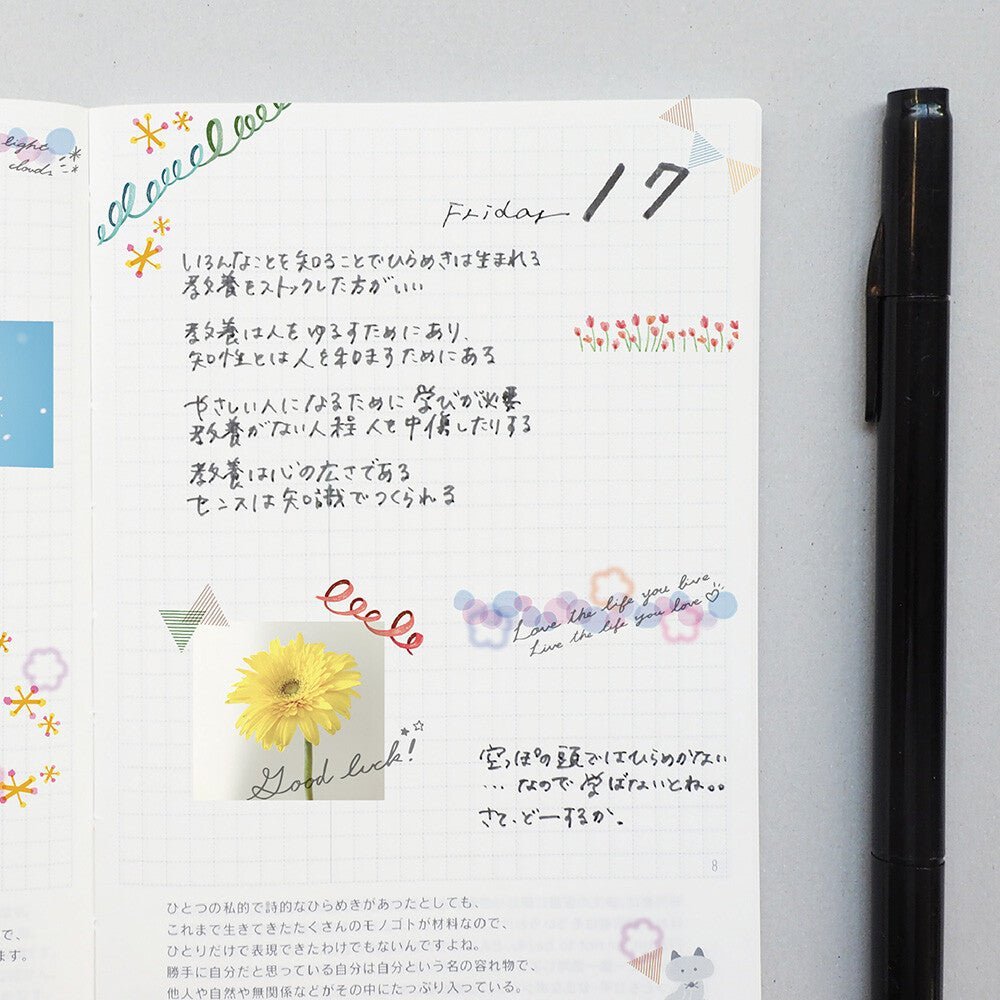 light
clouds
Friday 17
いろんなことを知ることでひらめきは生まれる
教養をストックした方がいい
教養は人をゆるすためにあり、
知性とは人を和ますためにある
やさしい人になるために学びが必要
教養がない人程人を中傷したりする
教養は心の広さである
センスは知識でつくられる
Love the life you live
Live the life you love
Good luck!
空っぽの頭ではひらめかない
…なので学ばないとね。。
さて、どーするか。
8
ひとつの私的で詩的なひらめきがあったとしても、
これまで生きてきたたくさんのモノゴトが材料なので、
ひとりだけで表現できたわけでもないんですよね。
勝手に自分だと思っている自分は自分という名の容れ物で、
他人や自然や無関係などがその中にたっぷり入っている。
で、
ます。